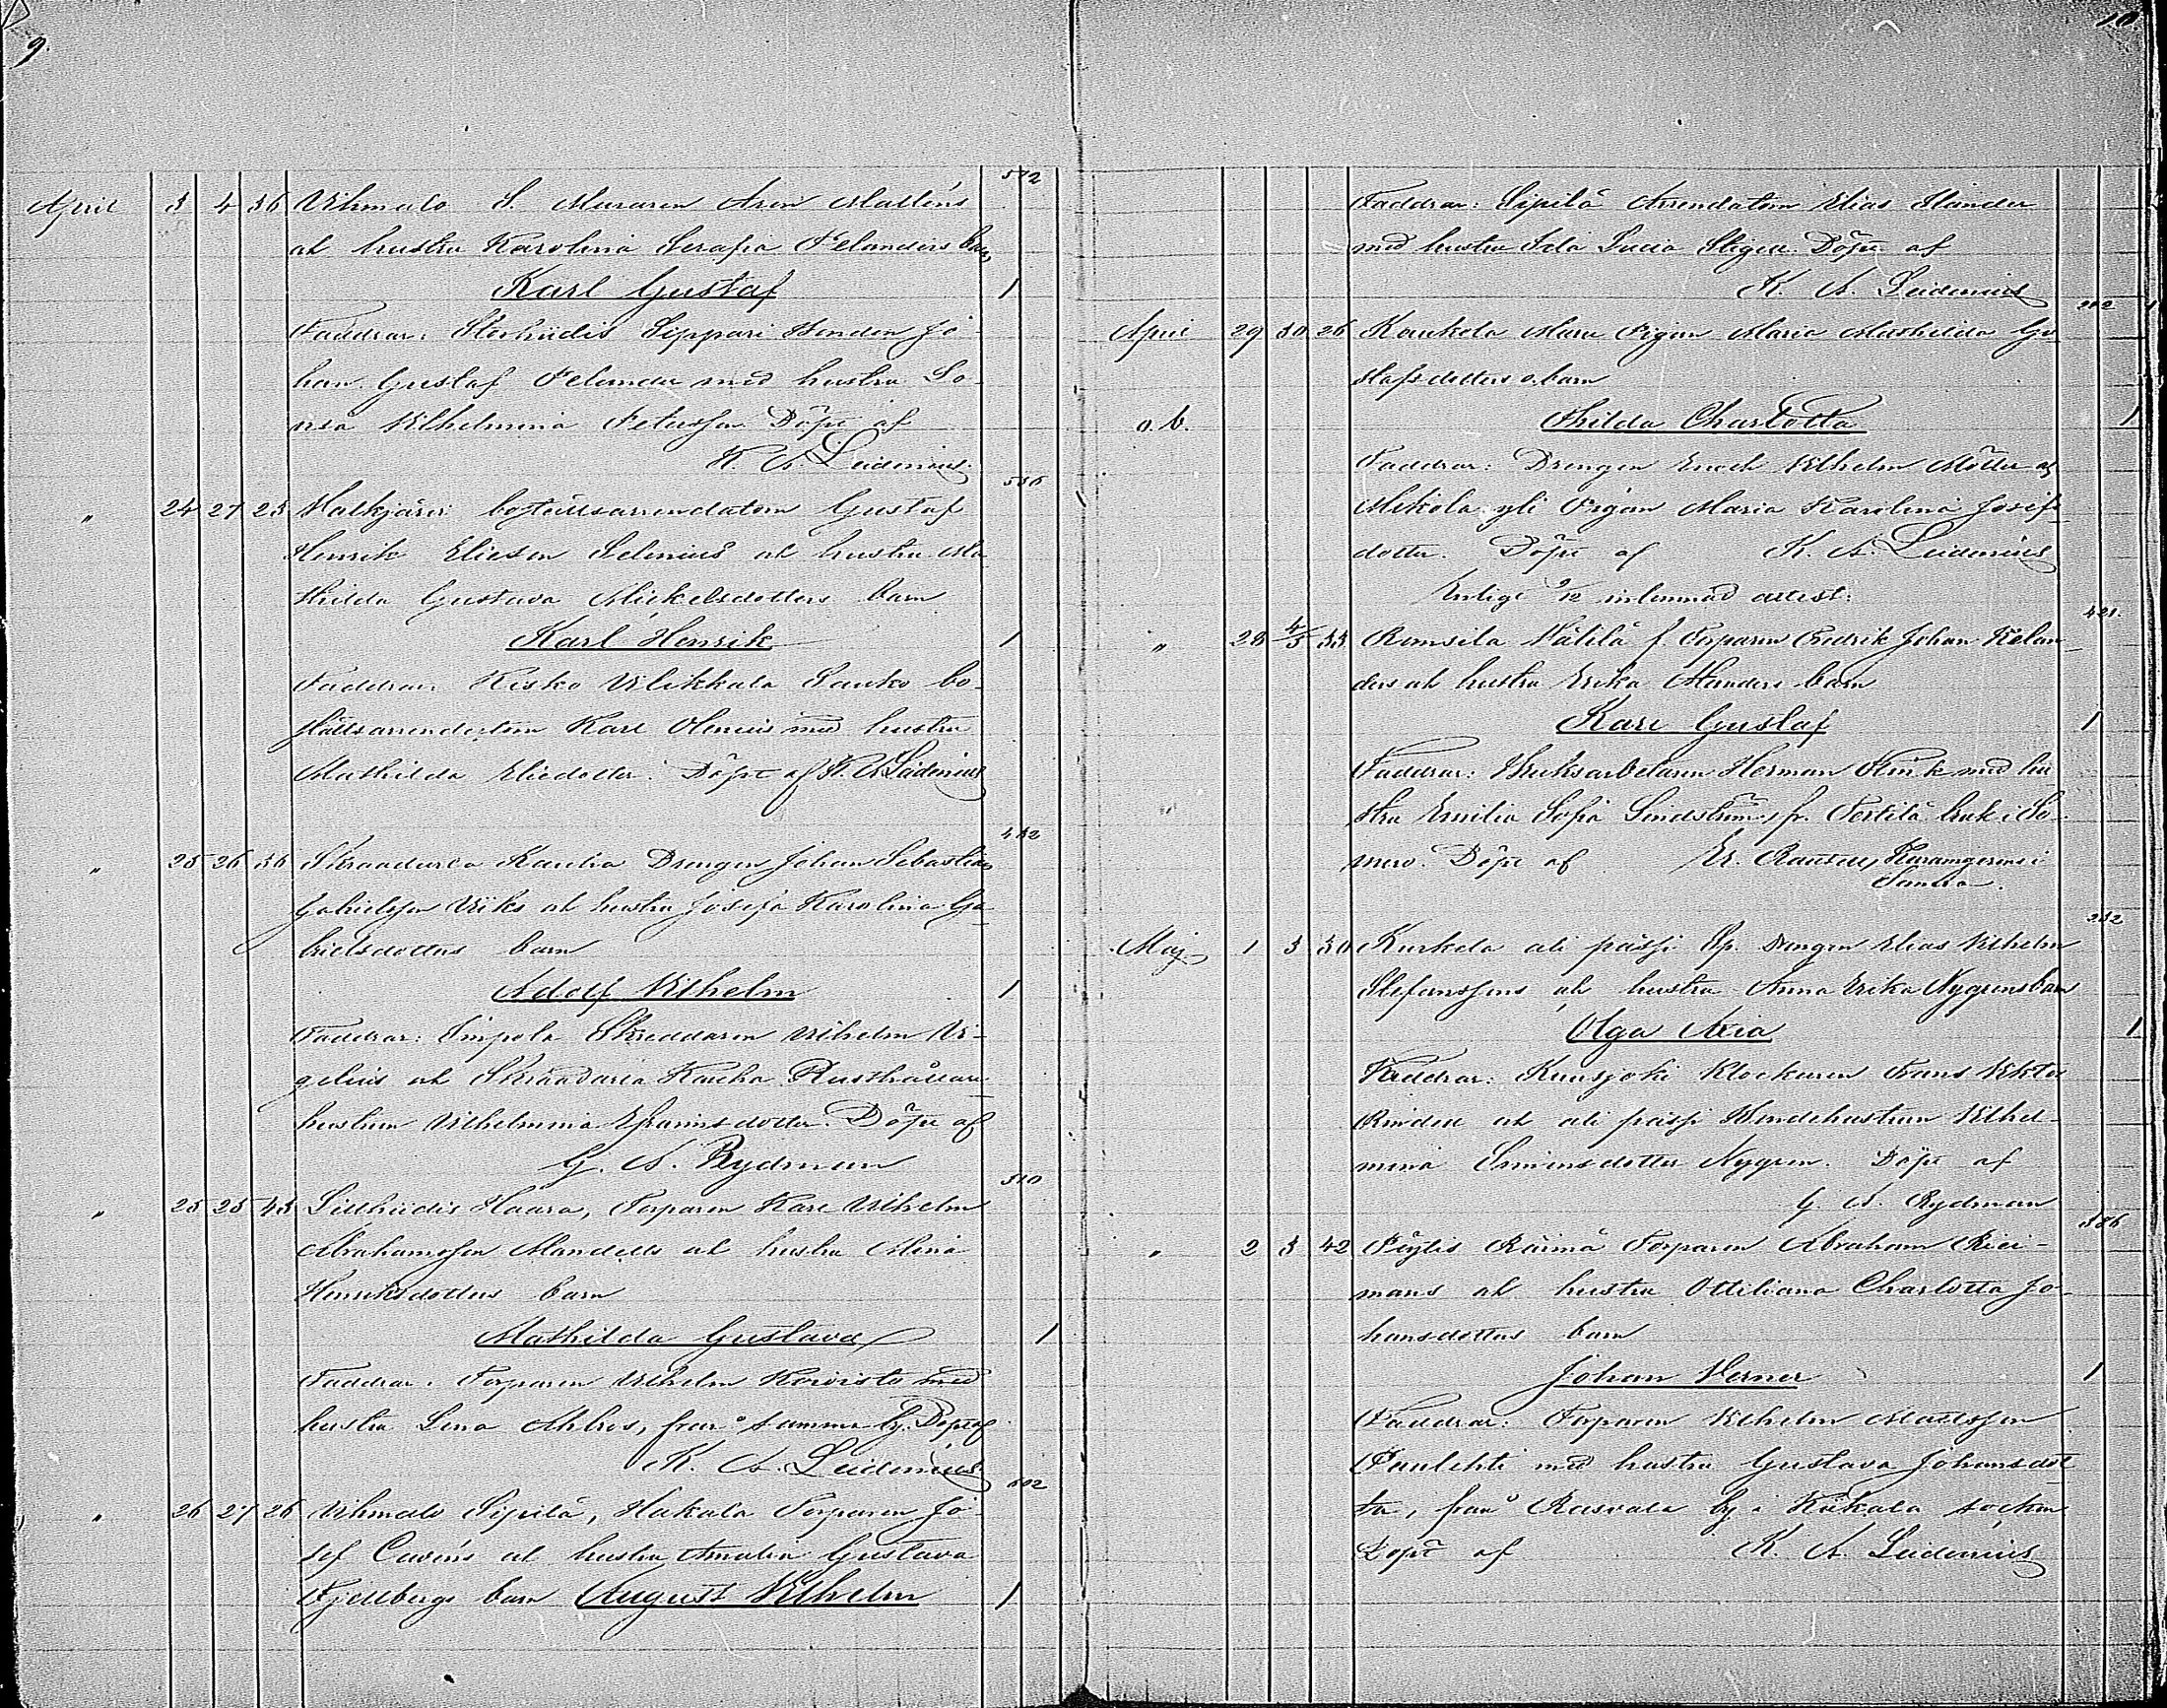 9.
572
April 3 4 36 Vihmalo S. Muraren Arvi Malléns
och hustru Karolina Serafia Felanders barn
Karl Gustaf 1
Faddrar: Sterhüdis Seppari Bonden Jo-
han Gustaf Felander med hustru Lo-
visa Vilhelmina Petersson Döpt af
K. A. Leidenius.
536
" 24 27 23 Halkjärvi bostellsarrendatorn Gustaf
Henrik Eliesen Selenius och hustru Ma
thilda Gustava Mickelsdotters barn
Karl Henrik 1
Faddrar: Kisko Vilikkala Sauko bo-
ställsarrendatorn Karl Olenius med hustru
Mathilda Eliedotter. Döpt af K. A. Leidenius
432
" 25 26 36 Skraadarla Kaucha Drengen Johan Sebastian
Gabrielsson Viks och hustru Josefa Karolina Ga
brielsdotters barn
Adolf Vilhelm 1
Faddrar: Simpola Skreddaren Vilhelm Vi-
gelius och Skraadarla Kaucha Rusthållare
hustrun Vilhelmina Efraimsdotter. Döpt af
G. A. Rydman
510
" 25 25 43 Sillhüdis Haara, Torparen Karl Vilhelm
Abrahamsson Mandells och hustru Mina
Henriksdotters barn
Mathilda Gustava 1
Faddrar. Torparen Vilhelm Koivisto med
hustru Lena Ahlros, från samma by. Döpt af
K. A. Leidenius.
602
" 26 27 26 Vihmalo Sipilä, Hakala Torparen Jo-
sef Cavéns och hustru Amalia Gustava
Fjellbergs barn August Vilhelm 1
10.
Faddrar: Sipilä Arrendatorn Elias Hander
med hustru Ida Lucia Stigell. Döpt af
K. A. Leidenius
202
April 29 30 26 Kaukola Maru Pigan Maria Mathilda Gu
stafsdotters o. barn
o. b. Hilda Charlotta 1
Faddrar: Drengen Enoch Vilhelm Möller och
Mikola yli Pigan Maria Karolina Josefs-
dotter. Döpt af K. A. Leidenius
Enligt 9/12 inlemnad attest:
421.
" 28 4/5 33 Romsila Välilä f. Torparen Fredrik Johan Kelan
ders och hustru Erika Handers barn
Karl Gustaf 1
Faddrar: Bruksarbetaren Herman Flink med hu
stru Emilia Sofia Lindström, fr. Terttilä bruk i So-
mero. Döpt af K. Rantau,
232
Maj 1 3 30 Kurkela ali pässi Rp. Drengen Elias Vilhelm
Stefanssons och hustru Anna Erika Nygrens barn
Olga Axia 1
Faddrar: Kuusjoki Klockaren Frans Viktor
Rindell och ali pässi Bondehustrun Vilhel-
mina Simonsdotter Nygren. Döpt af
G. A. Rydman
586
" 2 3 42 Pöylis Räimä Torparen Abraham Riei-
mans och hustru Ottiliana Charlotta Jo-
hansdotters barn
Johan Verner 1
Faddrar: Torparen Vilhelm Mattsson
Paulehti med hustru Gustava Johansdot
ter, från Rasvala by i Kiikala socken
Döpt af K. A. Leidenius